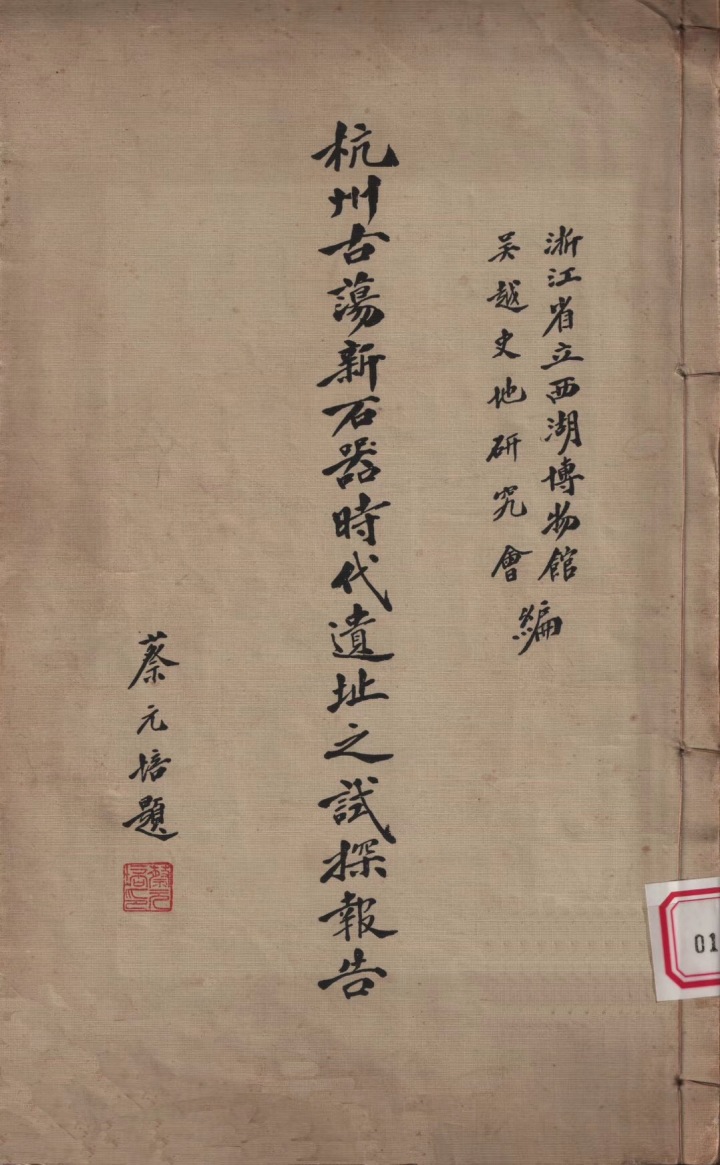 浙江省立西湖博物館
吳越史地研究會
編
杭州古蕩新石器時代遺址之試探報告
蔡元培題
蔡元培印
01